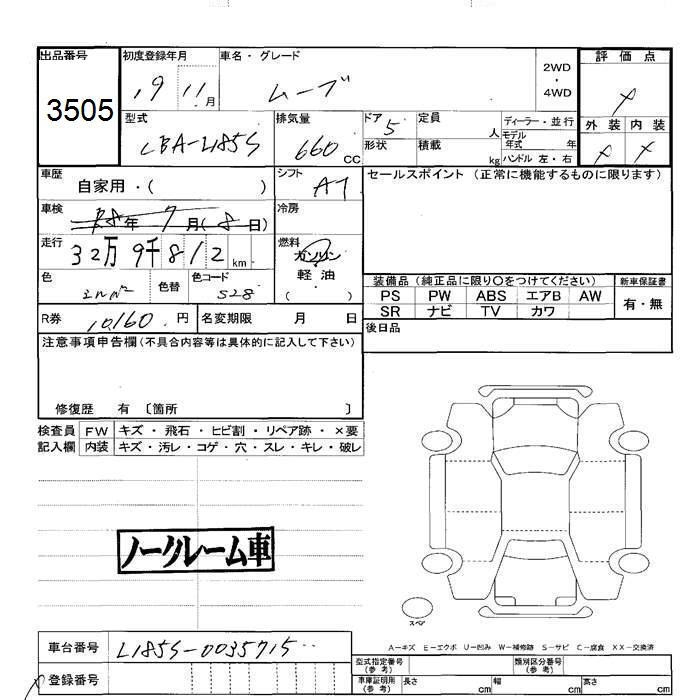 出品番号 初度登録年月 車名・グレード 評価点
3505 19 11月 ムーブ 2WD・4WD
型式 排気量 ドア 5 定員 人 ディーラー・並行 外装 内装
LBA-L185S 660 CC 形状 積載 kg モデル年式 年 ハンドル 左・右
車歴 自家用・( ) シフト AT セールスポイント (正常に機能するものに限ります)
車検 年 7月(8日) 冷房
走行 32万9千812km 燃料 ガソリン・軽油 ( )
色 色替 色コード S28
装備品 (純正品に限り○をつけてください) 新車保証書
PS PW ABS エアB AW 有・無
SR ナビ TV カワ
R券 10,160円 名変期限 月 日 後日品
注意事項申告欄(不具合内容等は具体的に記入して下さい)
修復歴 有 〔箇所 〕
検査員 FW キズ・飛石・ヒビ割・リペア跡・×要
記入欄 内装 キズ・汚レ・コゲ・穴・スレ・キレ・破レ
ノークレーム車
スペア
A-キズ E-エクボ U-凹み W-補修跡 S-サビ C-腐食 XX-交換済
車台番号 L185S-0035715
登録番号
型式指定番号(参考) 類別区分番号(参考)
車庫証明用(参考) 長さ cm 幅 cm 高さ cm